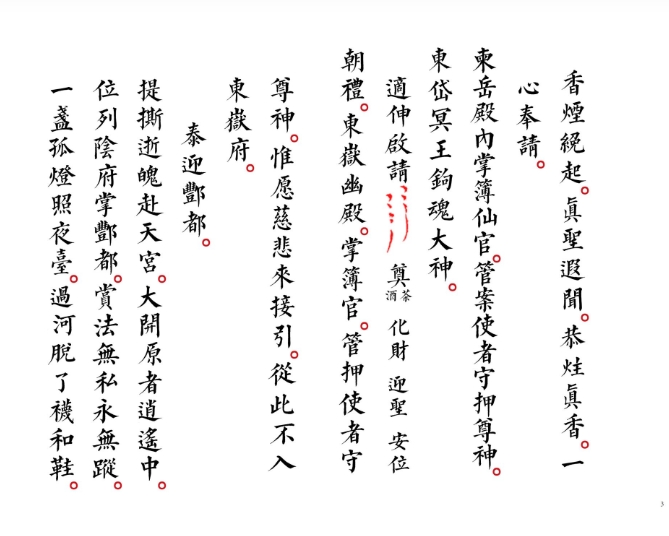 香煙纔起。眞聖遐聞。恭炷眞香。一
心奉請。
東岳殿內掌簿仙官。管案使者守押尊神。
東岱冥王鉤魂大神。
適伸啟請 奠茶酒 化財 迎聖 安位
朝禮。東嶽幽殿。掌簿官。管押使者守
尊神。惟愿慈悲來接引。從此不入
東嶽府。
泰迎酆都。
提撕逝魄赴天宮。大開原者逍遙中。
位列陰府掌酆都。賞法無私永無蹤。
一盞孤燈照夜臺。過河脫了襪和鞋。
3